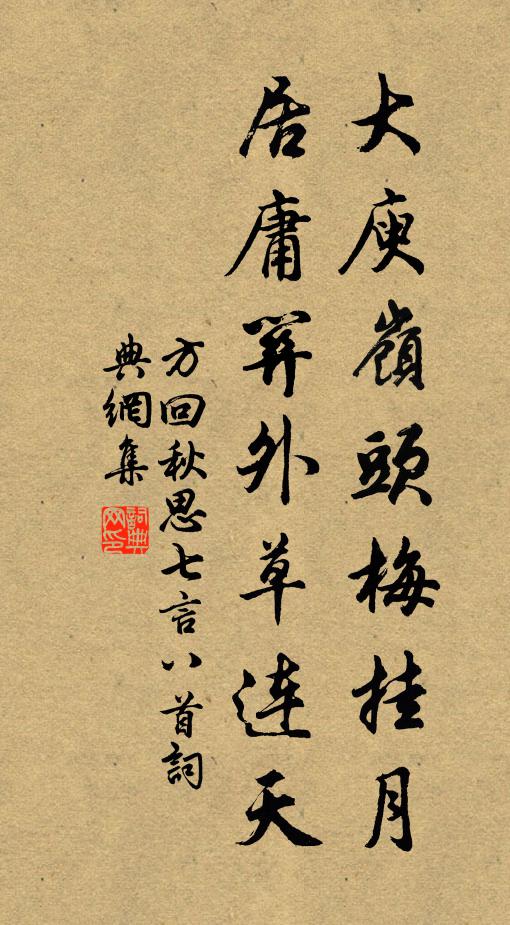 大庾嶺頭梅挂月
居庸關外草連天
方回秋思七言八首詞
典網集
詞典網印